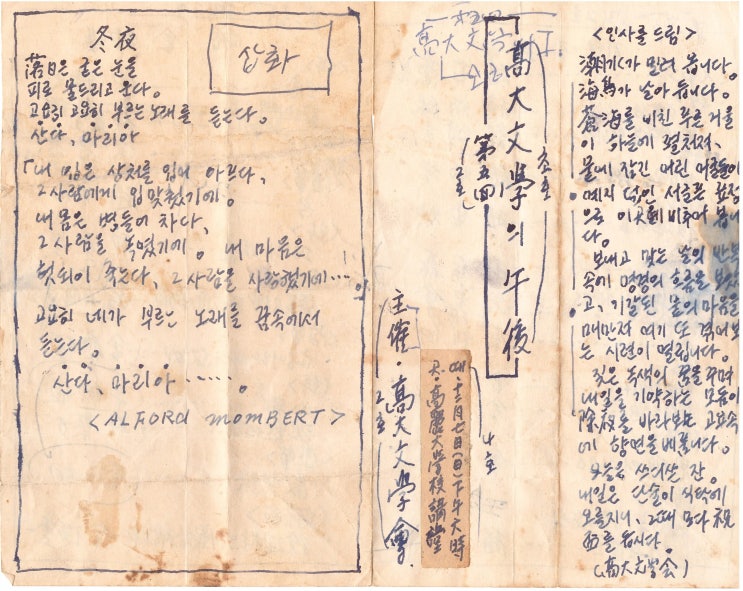 冬夜
삽화
落日은 굵은 눈을
피로 물드리고 온다。
고요히 고요히 부르는 노래를 듣는다。
산다, 마리아
「내 입은 상처를 입어 아프다,
그사람에게 입맞췄기에。
내 몸은 병들어 차다,
그사람을 녹였기에。 내 마음은
헛되이 죽는다, 그사람을 사랑했기에…!
고요히 네가 부르는 노래를 꿈속에서
듣는다。
산다, 마리아……。
<ALFORD MOMBERT>
高大文学
高大文學의 午後
第五回
초호
2호
主催·高大文學會
2호
때·十二月七日(日)下午六時
곳·高麗大学校講堂
4호
<인사를 드림>
潮汐가 밀려 옵니다。
海鳥가 날아 옵니다。
蒼海를 비친 푸른 거울
이 하늘에 펼쳐저、
물에 잠긴 어린
서글픈 표정
으로 비추어 봅니
다。
보내고 맞는 날의 반복
속에 명경의 흐름을 보았
고、기갈된 날의 마음을
매만저 여기 또 겪어보
는 시련이 열립니다。
짓은 녹색의 꿈을 꾸며
내일을 기약하는 모듬이
除夜를 바라보는 고요속
에 향연을 베풉니다。
오늘은 쓰디쓴 잔。
내일은 단술이 식탁에
오를지니、그때 모다 祝
를 듭시다。
(高大文學会)